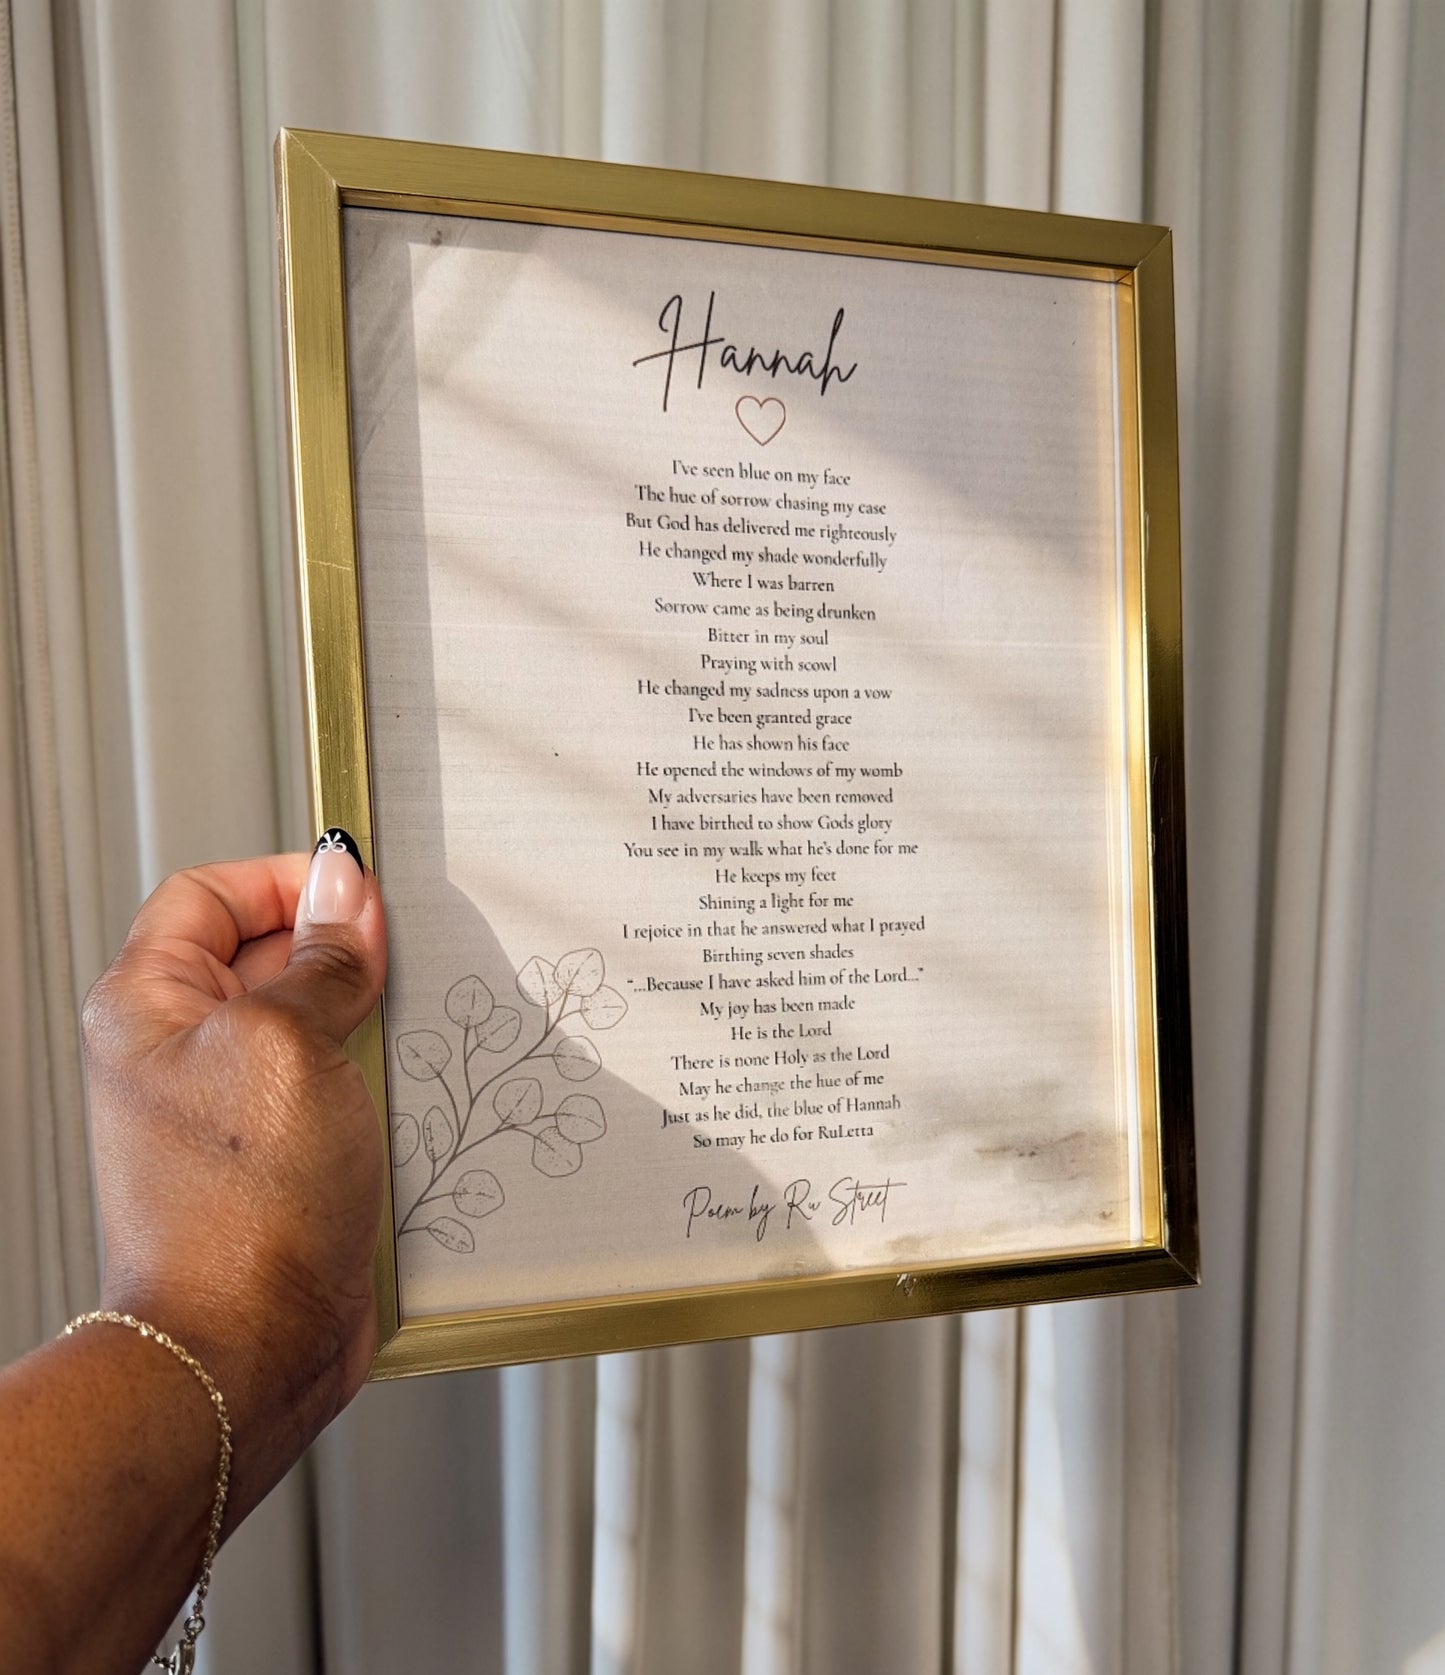 Hannah
I've seen blue on my face
The hue of sorrow chasing my case
But God has delivered me righteously
He changed my shade wonderfully
Where I was barren
Sorrow came as being drunken
Bitter in my soul
Praying with scowl
He changed my sadness upon a vow
I've been granted grace
He has shown his face
He opened the windows of my womb
My adversaries have been removed
I have birthed to show Gods glory
You see in my walk what he's done for me
He keeps my feet
Shining a light for me
I rejoice in that he answered what I prayed
Birthing seven shades
“...Because I have asked him of the Lord...”
My joy has been made
He is the Lord
There is none Holy as the Lord
May he change the hue of me
Just as he did, the blue of Hannah
So may he do for RuLetta
Poem by Ru Street